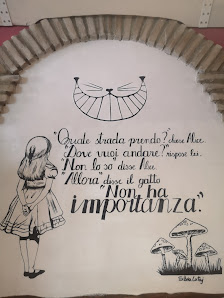 "Quale strada prendo?" chiese Alice.
"Dove vuoi andare?" rispose lui.
"Non lo so" disse Alice.
"Allora" disse il gatto
"Non ha
importanza."